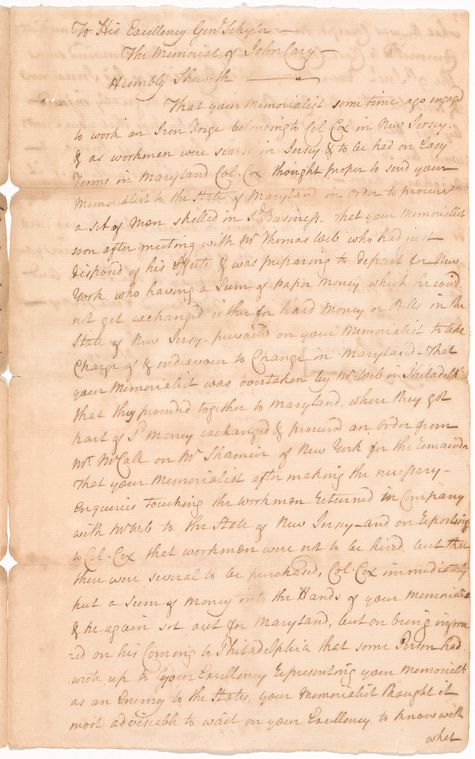 To His Excellency Genl Schyler —
The Memorial of John Cary —
Humbly Sheweth —
That your Memorialist some time ago engaged
to work an Iron Forge belonging to Col Cox in New Jersey
& as workmen were scarce in Jersey & to be had on Easy
Terms in Maryland Col. Cox thought proper to send your
Memorialist to the State of Maryland in order to procure
a set of Men skelled in Sd Business. that your Memorialist
soon after meeting with Mr Thomas Web who had just
dispond of his Effects & was preparing to depart for New
York who having a Sum of Paper Money which he could
not get exchanged either for hard Money or Bills in the
State of New Jersy - prevailed on your Memorialist to take
Charge of & endeavour to Change in Maryland - That
your Memorialist was overtaken by Mr Web in Philadelpa
that they proceeded together to Maryland, where they got
part of Sd Money exchanged & procured an order from
Mr McCall on Mr of New York for the remainder
That your Memorialist after making the necessary -
Enquiries touching the workmen returned in Company
with Mr Web to the State of New Jersey - and on Reporting
to Col- Cox that workmen were not to be hired but that
there were several to be purchased, Col- Cox immediately
put a Sum of Money into the Hands of your Memorialist
& he again set out for Maryland, but on being inform
-ed on his Coming to Philadelphia that some Person had
wrote up to your Excellency Representing your Memorialist
as an Enemy to the States, your Memorialist thought it
most adviseable to wait on your Excellency to know with
what